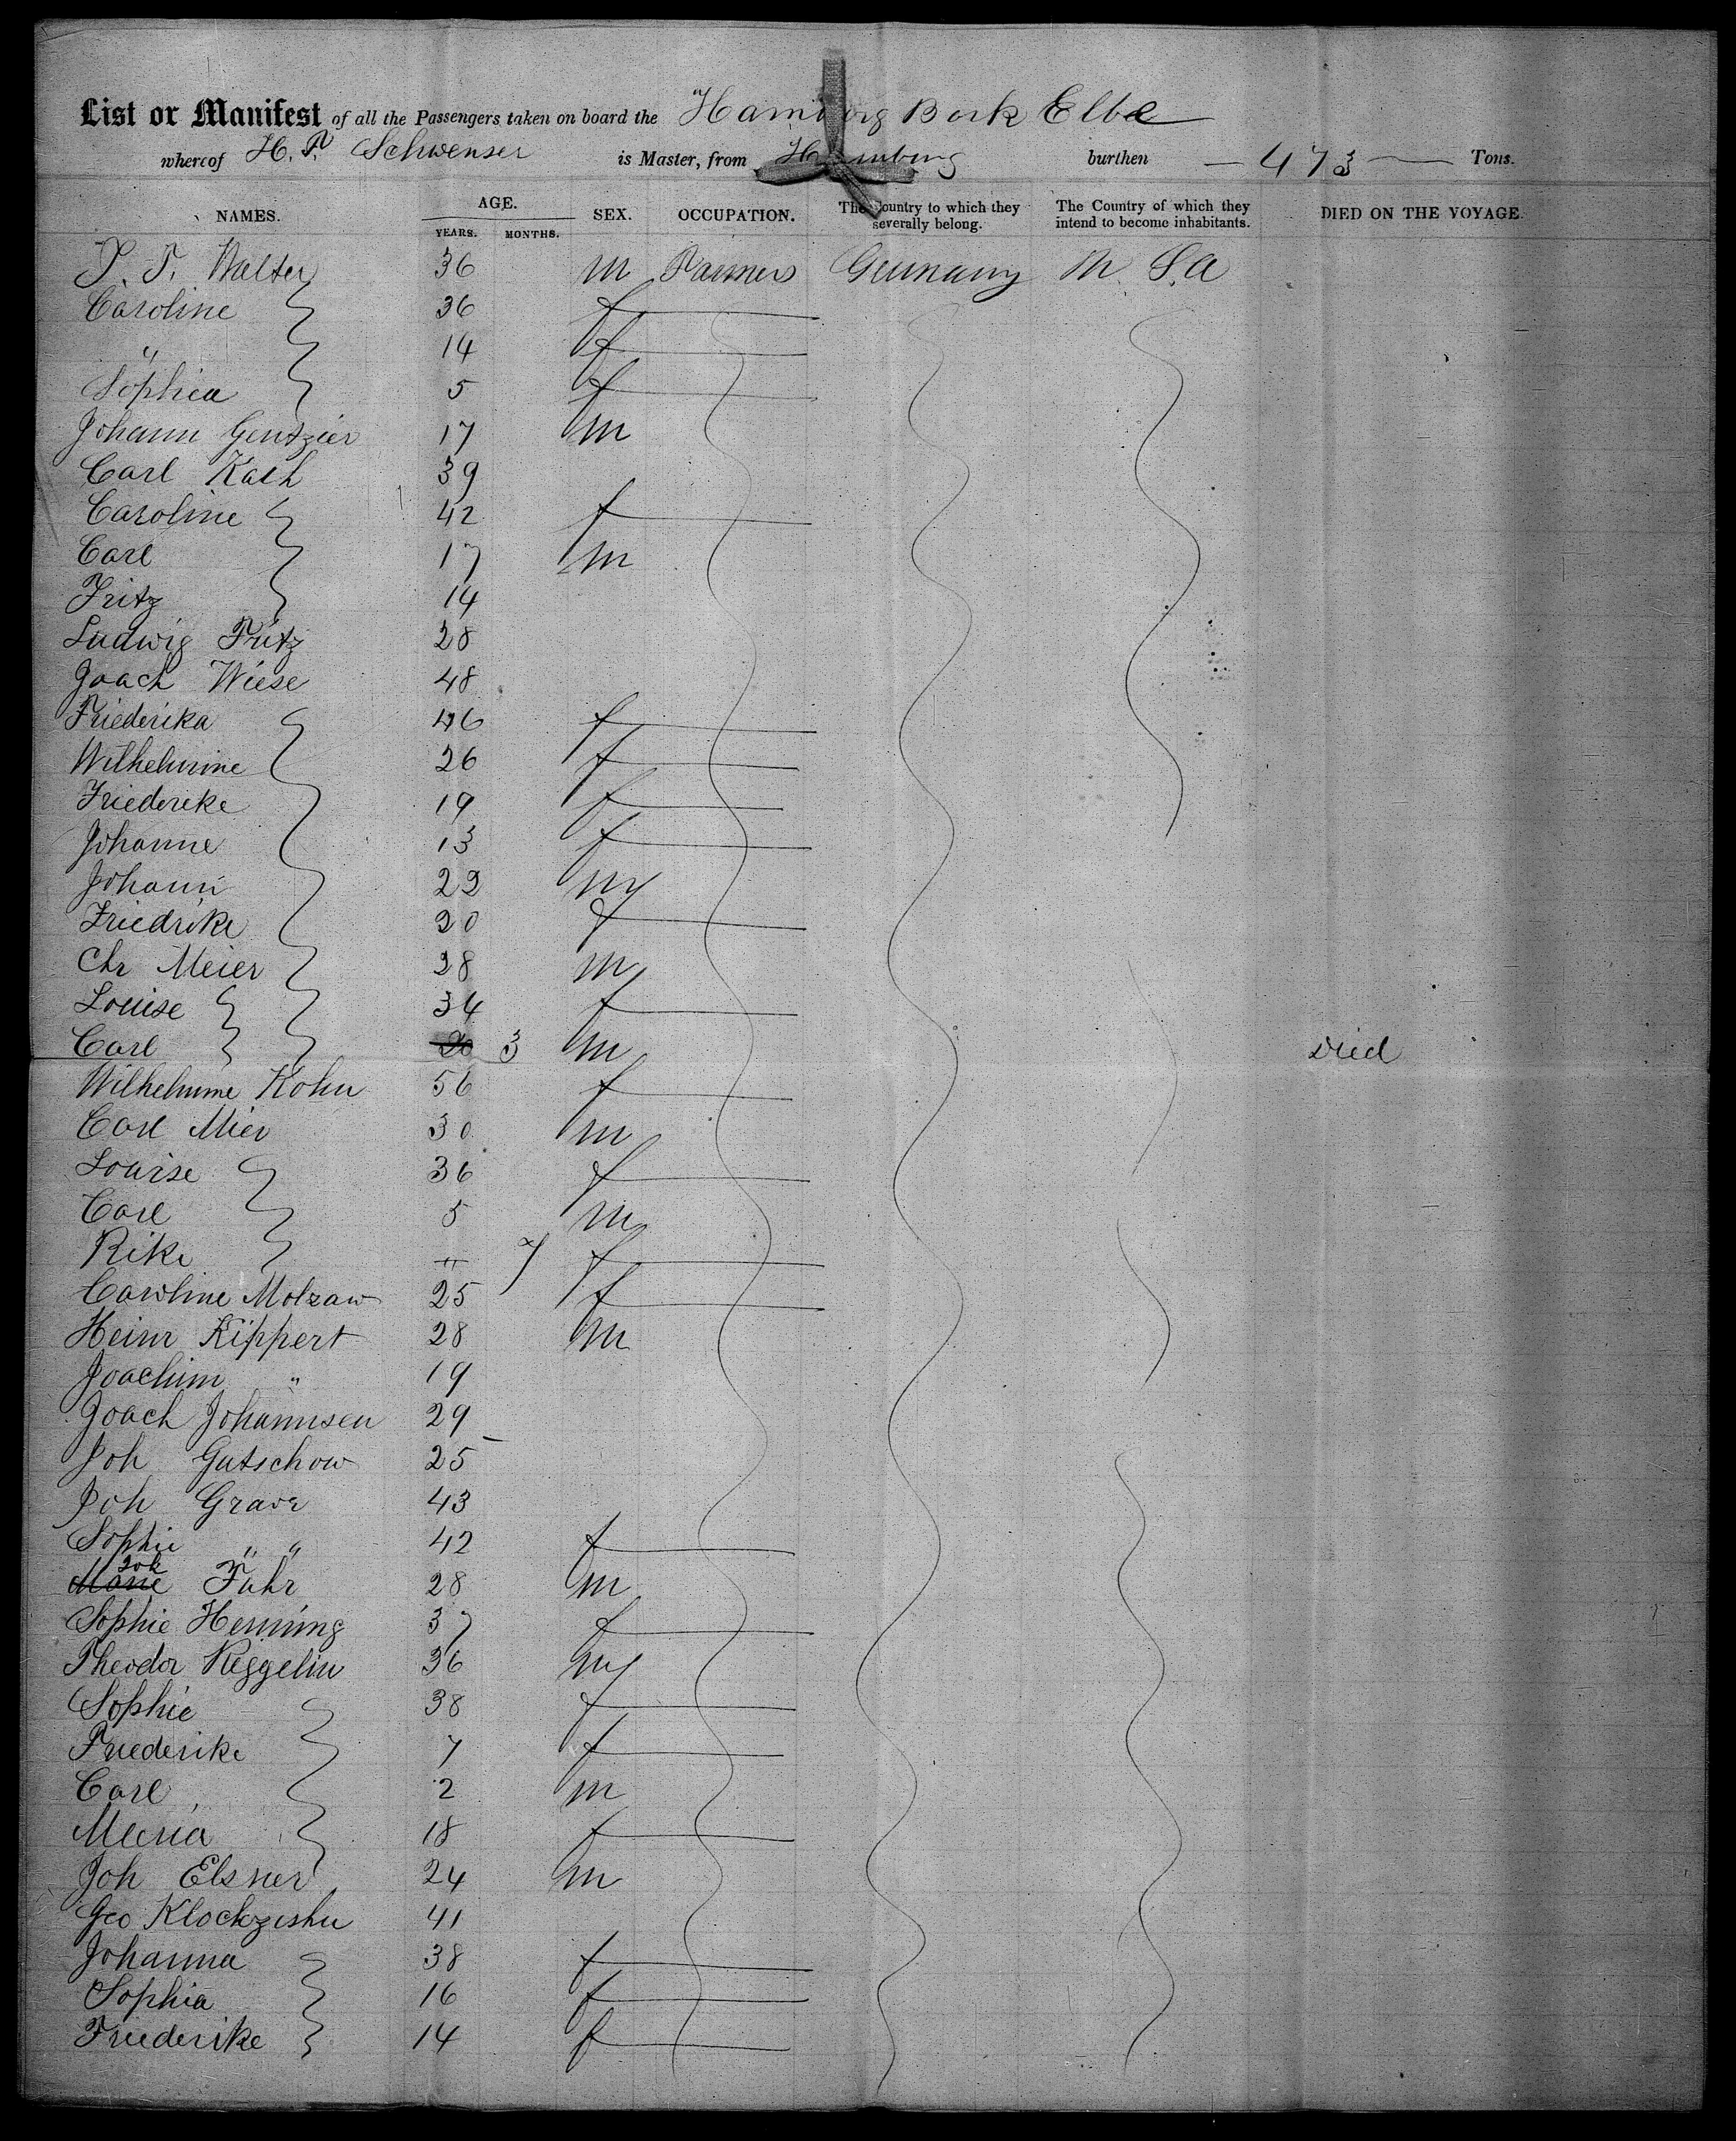 List or Manifest of all the Passengers taken on board the Hamburg Bark Elbe
whereof H. P. Schwenser is Master, from Hamburg burthen — 473 — Tons.
NAMES. AGE. YEARS. MONTHS. SEX. OCCUPATION. The Country to which they severally belong. The Country of which they intend to become inhabitants. DIED ON THE VOYAGE.
Walter 36 m Farmers Germany
Caroline 36 f
" 14 f
Sophia 5 f
Johann Gentzier 17 m
Carl Kach 39
Caroline 42 f
Carl 17 m
Fritz 14
Ludwig Fritz 28
Joach Wiese 48
Friederika 46 f
Wilhelmine 26 f
Friedereke 19 f
Johanne 13 f
Johann 22 m
Friedrike 20 f
Chr Meier 28 m
Louise 34 f
Carl 3 m Died
Wilhelmine Kohn 56 f
Carl Mier 30 m
Louise 36 f
Carl 5 m
Rike " 7 f
Caroline Molzaw 25 f
Heinr Kippert 28 m
Joachim " 19
Joach Johannsen 29
Joh Gutschow 25
Joh Grave 43
Sophie " " 42 f
Joh Fuhr 28 m
Sophie Henning 37 f
Theodor Reggelin 36 m
Sophie 38 f
Friederike 7 f
Carl 2 m
Maria 18 f
Joh Elsner 24 m
Geo 41
Johanna 38 f
Sophia 16 f
Friederike 14 f